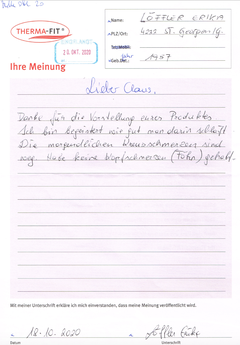 THERMA-FIT®
20. OKT. 2020
Name: LÖFFLER ERIKA
PLZ/Ort: 4222 ST. Georgen/G.
Geb. Jahr: 1957
Ihre Meinung
Lieber Claus,
Danke für die Vorstellung eures Produktes
Ich bin begeistert wie gut man darin schläft
Die morgendlichen Kreuzschmerzen sind
weg. Habe keine Kopfschmerzen (Föhn) gehabt.
Mit meiner Unterschrift erkläre ich mich einverstanden, dass meine Meinung veröffentlicht wird.
18.10.2020
Löffler Erika
Datum
Unterschrift